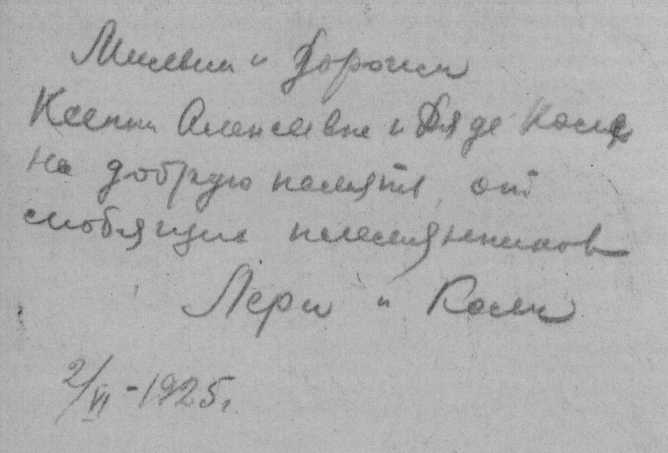 Милым и дорогим
Ксении Алексеевне и Дяде Коле
на добрую память от
любящих племянников
Леры и Коли
2/VI - 1925 г.